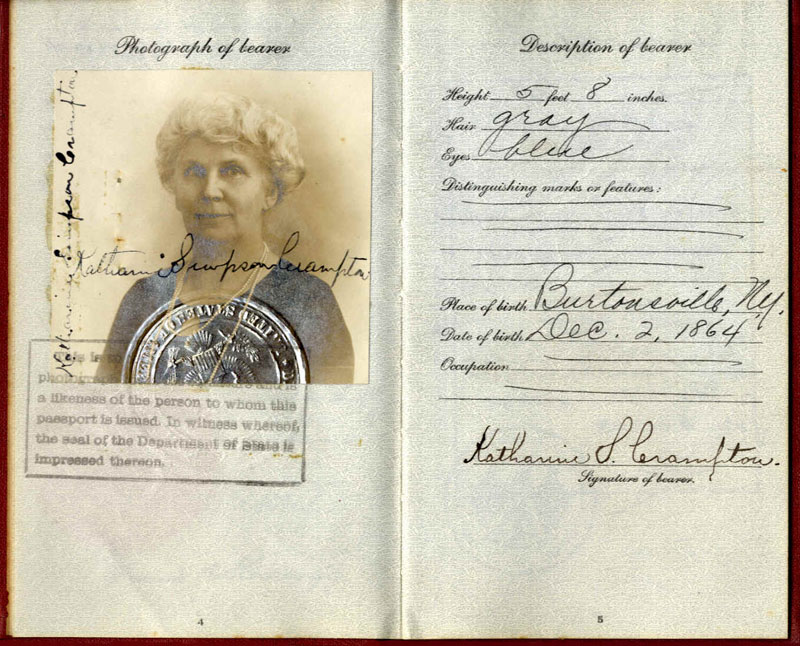 Photograph of bearer
Katharine Simpson Crampton
Katharine Simpson Crampton
This is
photograph and is
a likeness of the person to whom this
passport is issued. In witness whereof,
the seal of the Department of State is
impressed thereon.
4
Description of bearer
Height 5 feet 8 inches.
Hair gray
Eyes blue
Distinguishing marks or features:
Place of birth Burtonsville, NY.
Date of birth Dec. 2, 1864
Occupation
Katharine S. Crampton.
Signature of bearer.
5